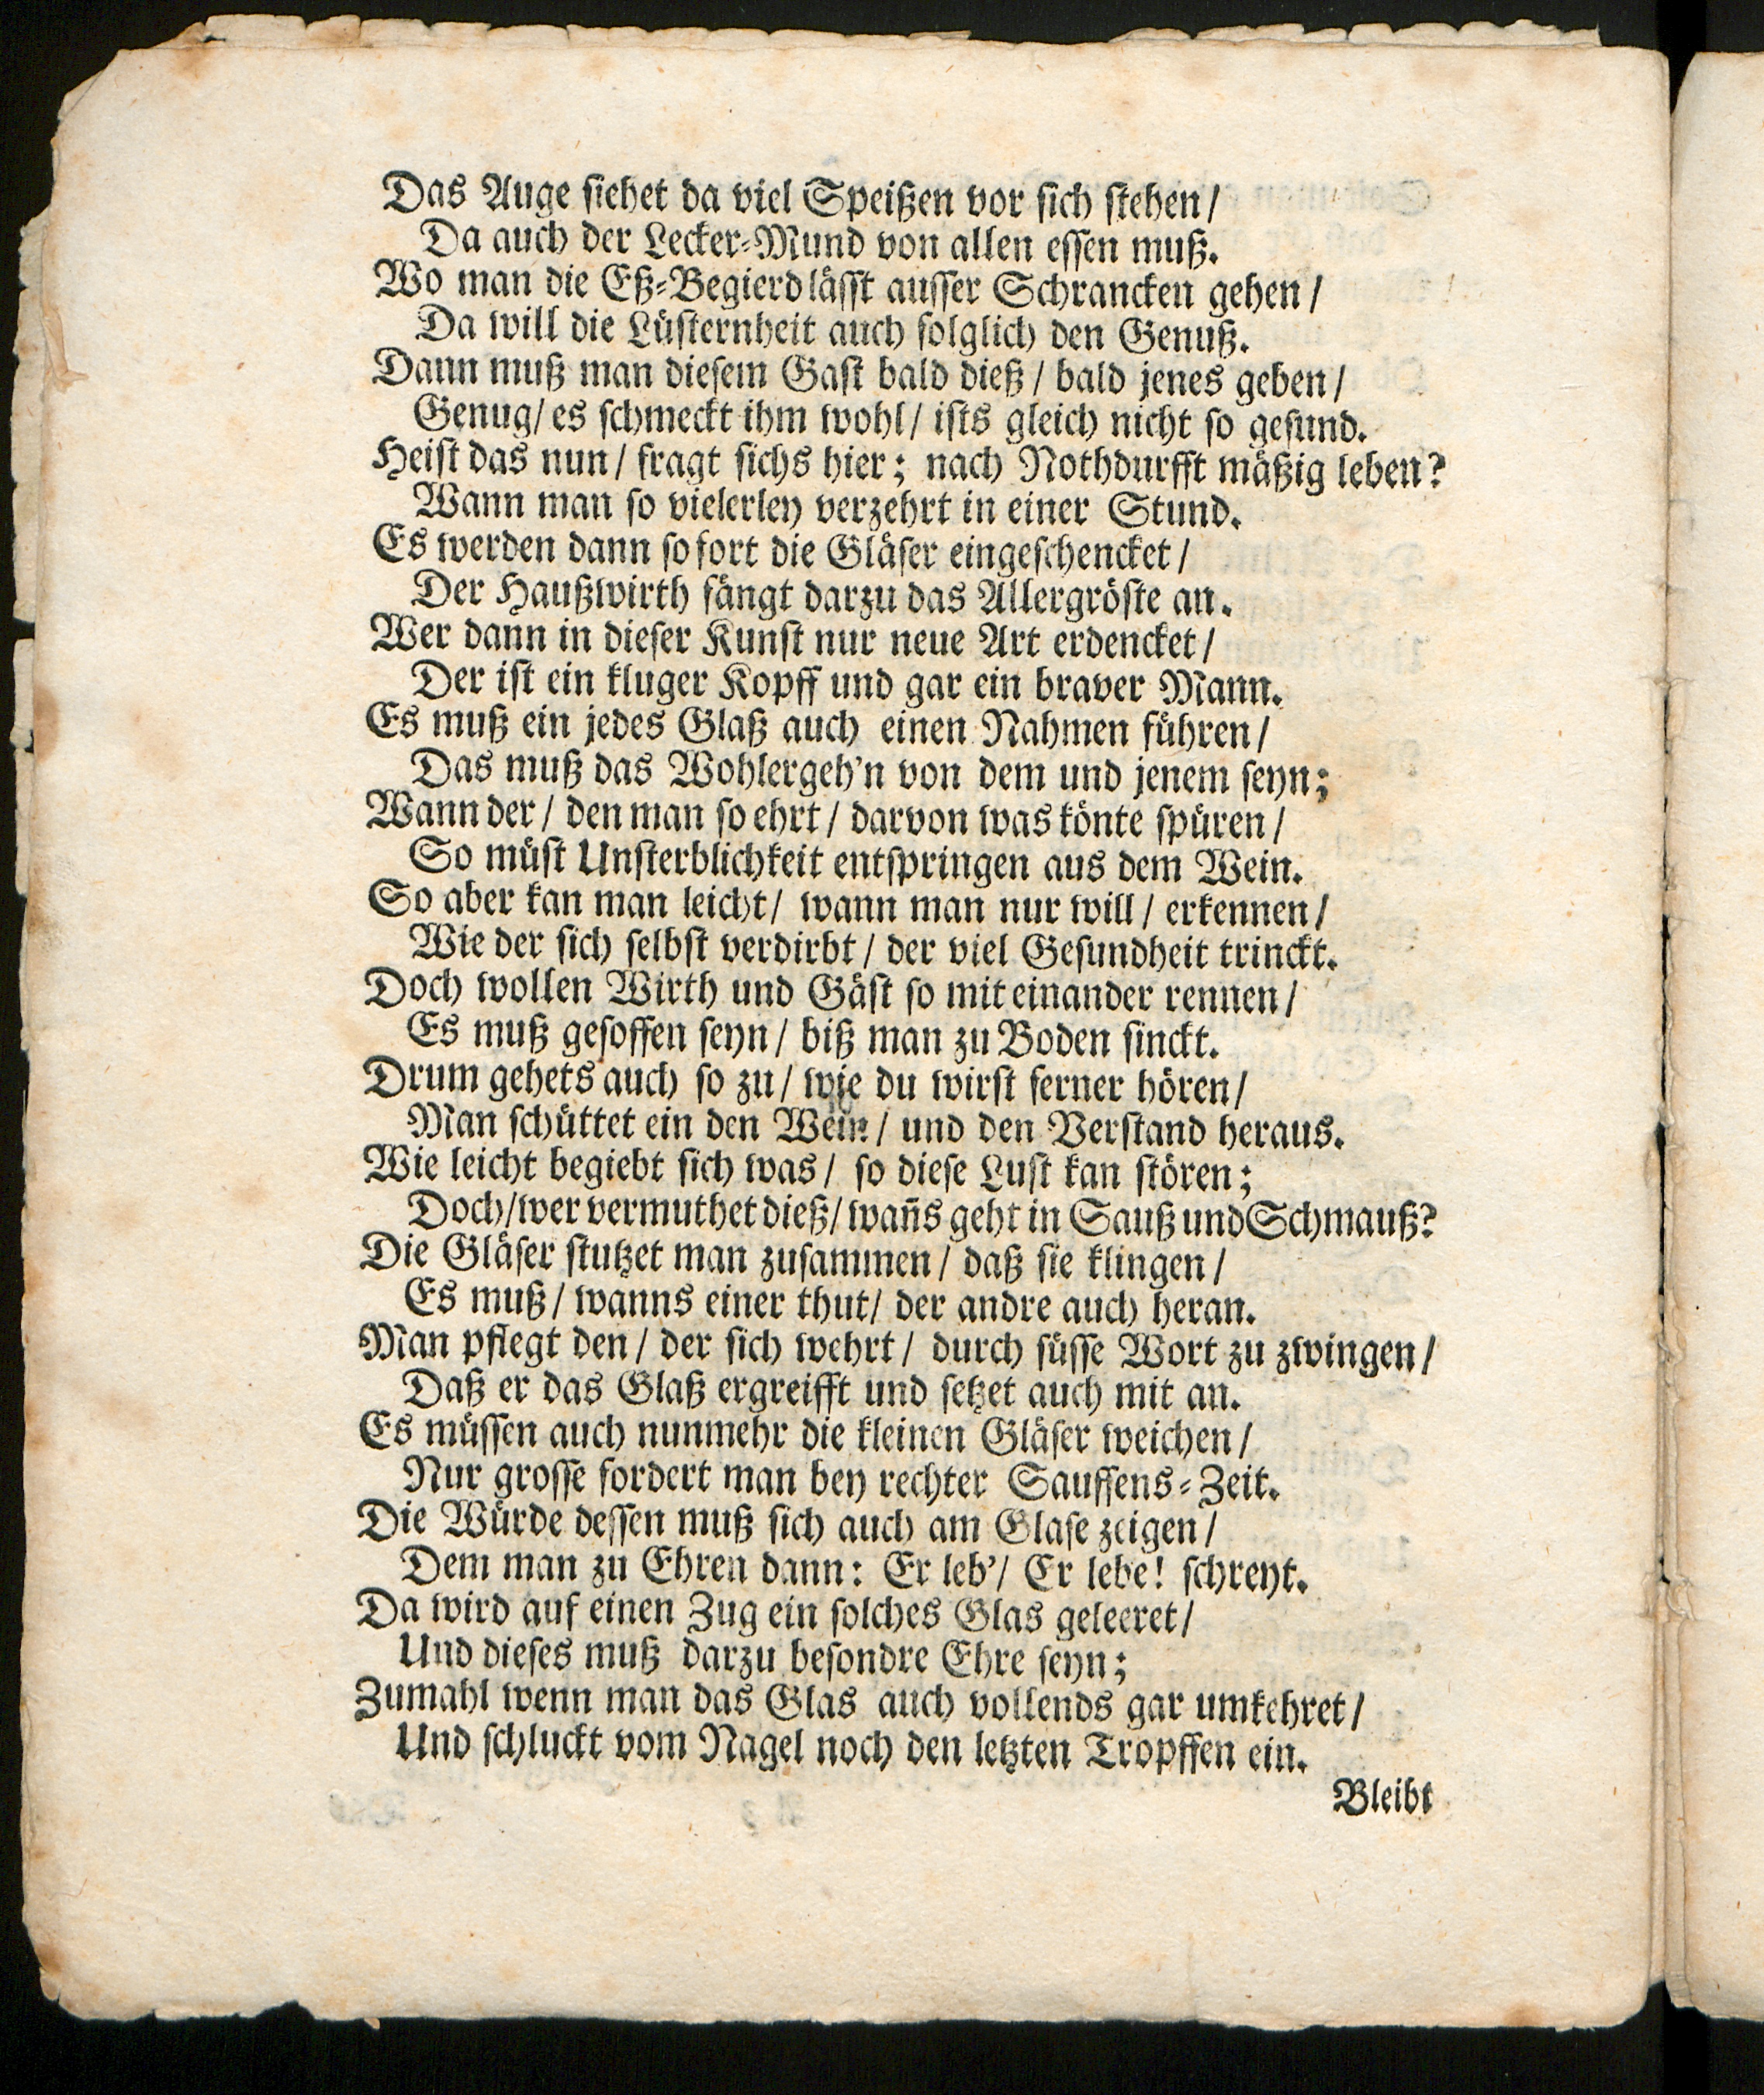 Das Auge siehet da viel Speißen vor sich stehen/
Da auch der Lecker-Mund von allen essen muß.
Wo man die Eß-Begierd lässt ausser Schrancken gehen/
Da will die Lüsternheit auch folglich den Genuß.
Dann muß man diesem Gast bald dieß/ bald jenes geben/
Genug/ es schmeckt ihm wohl/ ists gleich nicht so gesund.
Heist das nun/ fragt sichs hier; nach Nothdurfft mäßig leben?
Wann man so vielerley verzehrt in einer Stund.
Es werden dann so fort die Gläser eingeschencket/
Der Haußwirth fängt darzu das Allergröste an.
Wer dann in dieser Kunst nur neue Art erdencket/
Der ist ein kluger Kopff und gar ein braver Mann.
Es muß ein jedes Glaß auch einen Nahmen führen/
Das muß das Wohlergeh'n von dem und jenem seyn;
Wann der/ den man so ehrt/ darvon was könte spüren/
So müst Unsterblichkeit entspringen aus dem Wein.
So aber kan man leicht/ wann man nur will/ erkennen/
Wie der sich selbst verdirbt/ der viel Gesundheit trinckt.
Doch wollen Wirth und Gäst so mit einander rennen/
Es muß gesoffen seyn/ biß man zu Boden sinckt.
Drum gehets auch so zu/ wie du wirst ferner hören/
Man schüttet ein den Wein/ und den Verstand heraus.
Wie leicht begiebt sich was/ so diese Lust kan stören;
Doch/ wer vermuthet dieß/ wañs geht in Sauß und Schmauß?
Die Gläser stutzet man zusammen/ daß sie klingen/
Es muß/ wanns einer thut/ der andre auch heran.
Man pflegt den/ der sich wehrt/ durch süsse Wort zu zwingen/
Daß er das Glaß ergreifft und setzet auch mit an.
Es müssen auch nunmehr die kleinen Gläser weichen/
Nur grosse fordert man bey rechter Sauffens-Zeit.
Die Würde dessen muß sich auch am Glase zeigen/
Dem man zu Ehren dann: Er leb'/ Er lebe! schreyt.
Da wird auf einen Zug ein solches Glas geleeret/
Und dieses muß darzu besondre Ehre seyn;
Zumahl wenn man das Glas auch vollends gar umkehret/
Und schluckt vom Nagel noch den letzten Tropffen ein.
Bleibt